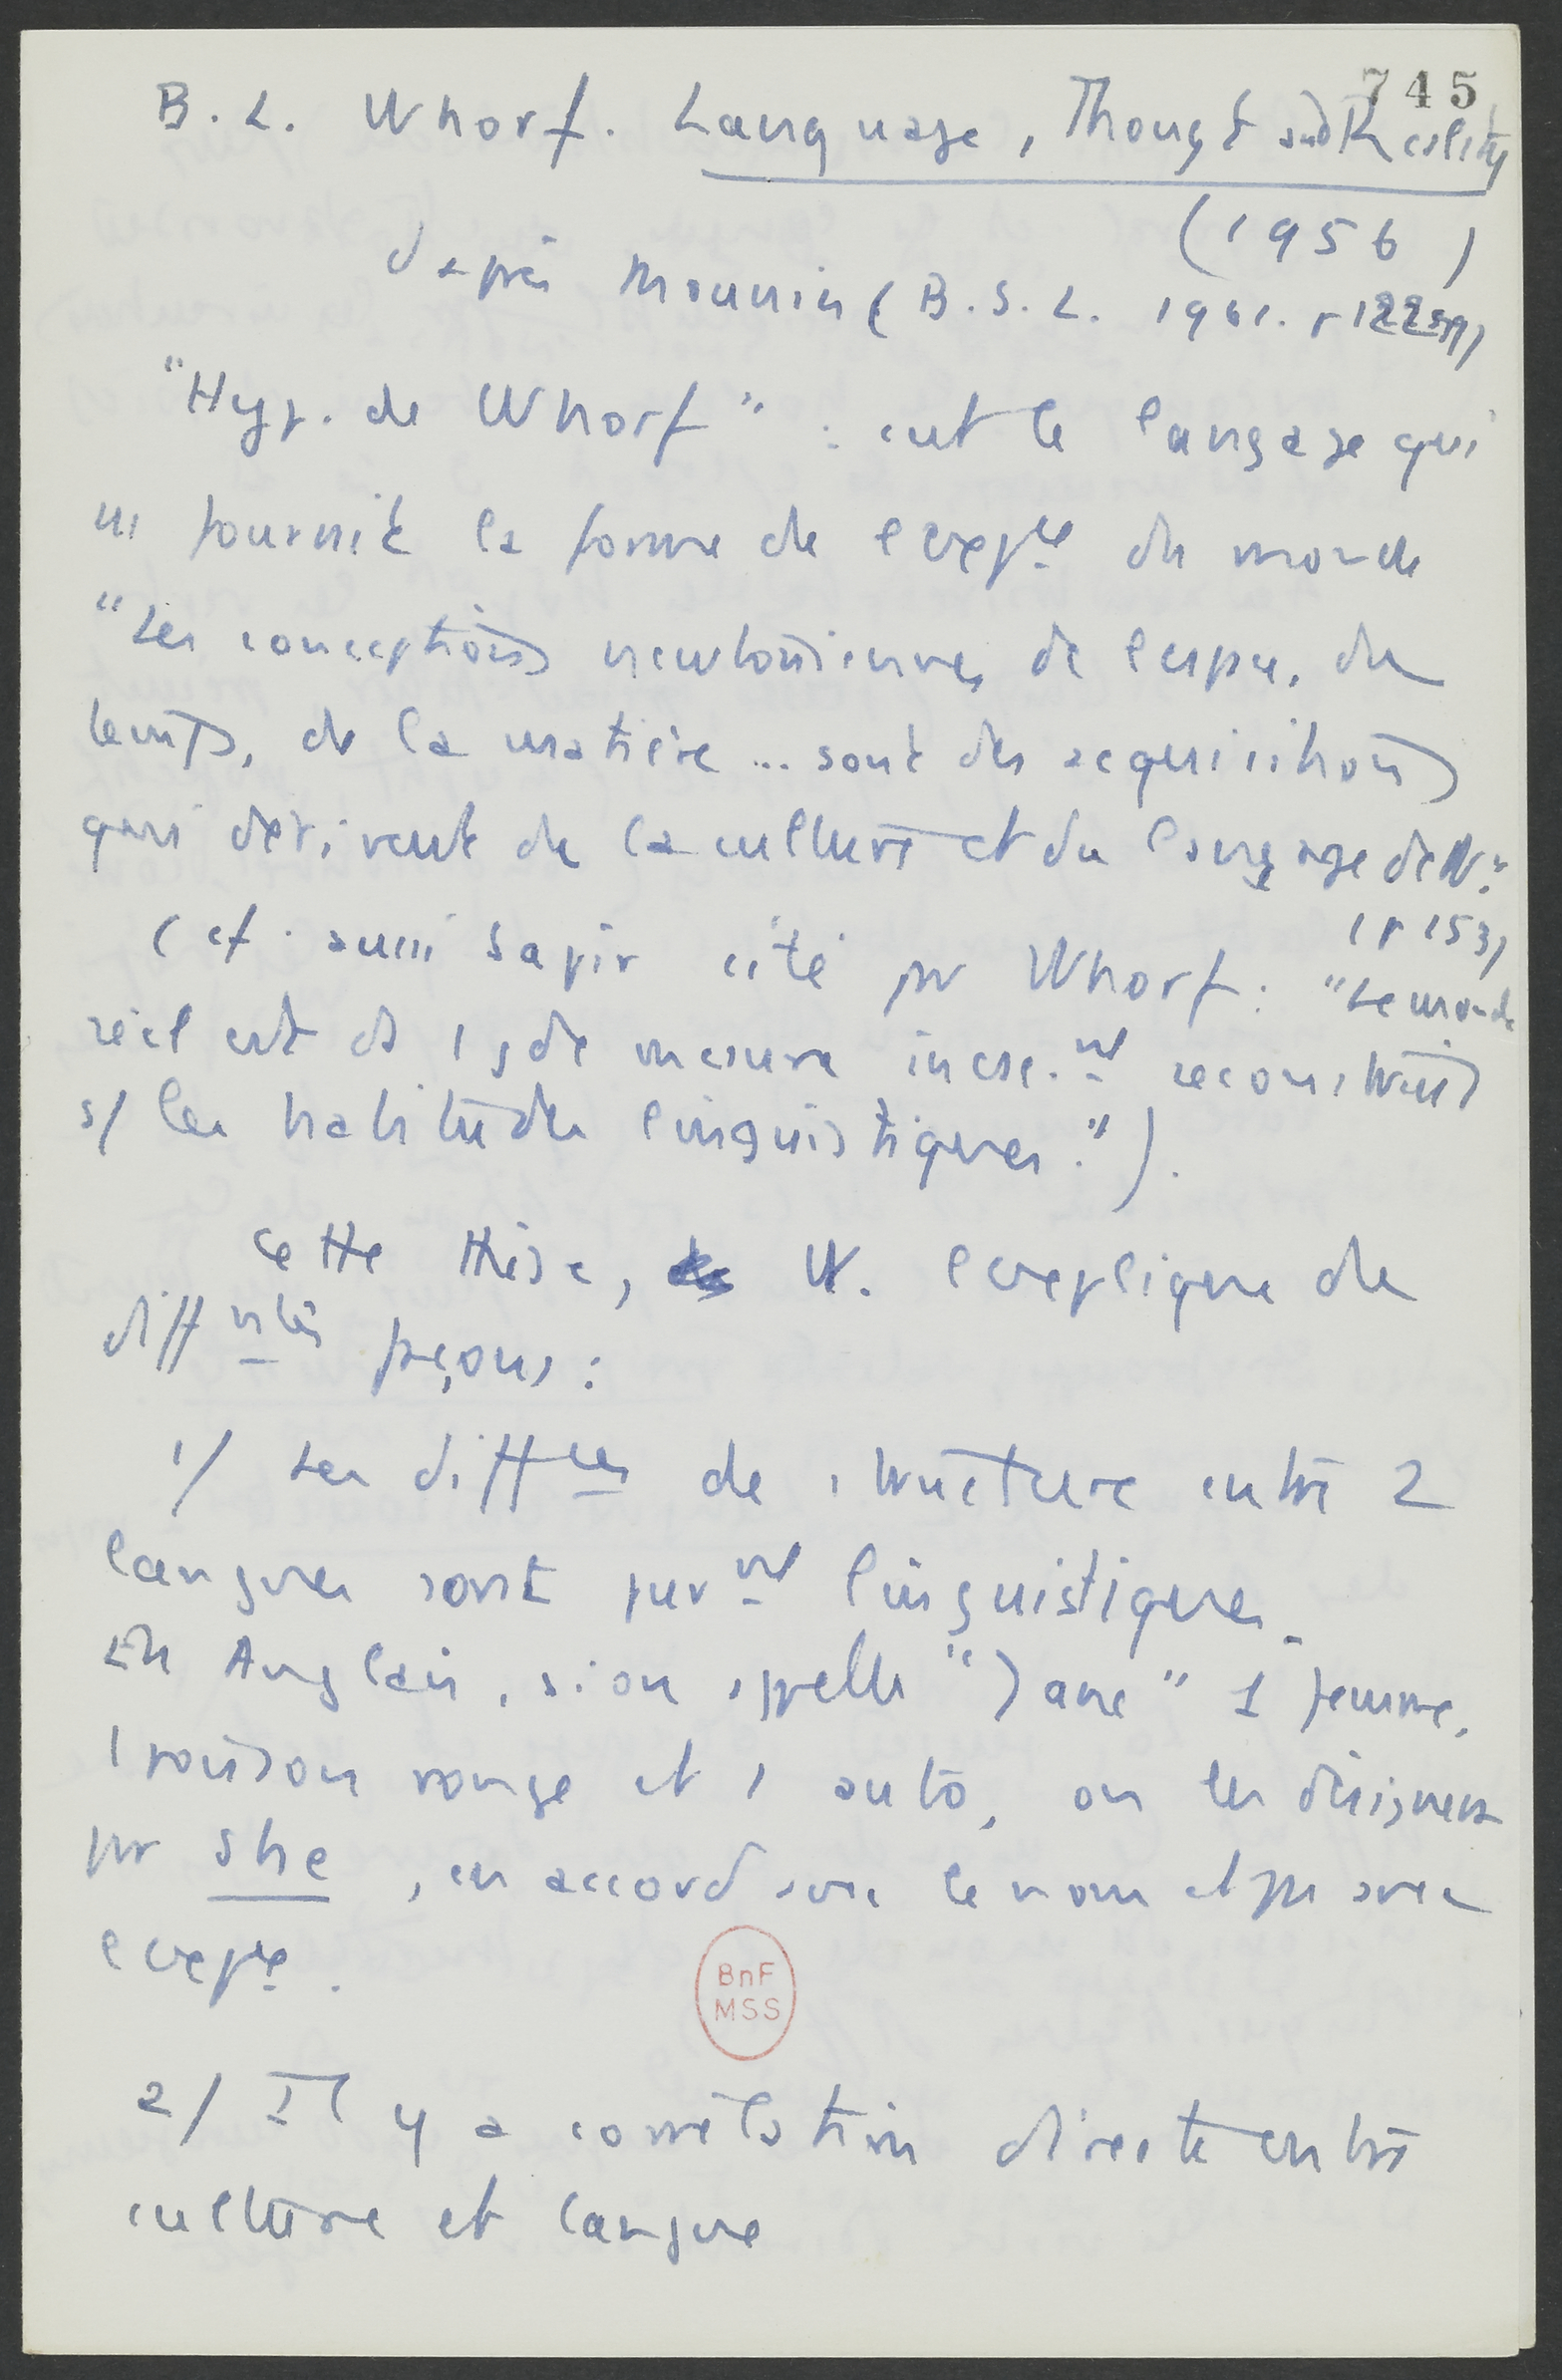 745
B. L. Whorf. Language, Thought and Reality
(1956)
d'après Mounin (B.S.L. 1961. p
"Hyp. de Whorf" : c'est le langage qui
ns fournit la forme de l'expce du monde
"Les conceptions newtoniennes de l'espace, du
temps, de la matière ... sont des acquisitions
qui dérivent de la culture et du langage de N."
(p 153)
(cf. aussi Sapir cité par Whorf : "Le monde
réel est ds 1 gde mesure incst. nt reconstruit
s/ les habitudes linguistiques.").
Cette thèse, W. l'explique de
diffntes façons :
1/ Les diffces de structure entre 2
langues sont purnt linguistiques.
En Anglais, si on appelle "Jane" 1 femme,
1 poisson rouge et 1 auto, on les désignera
par she, en accord avec le nom et pas avec
l'expce.
BnF
MSS
2/ Il y a corrélation directe entre
culture et langue